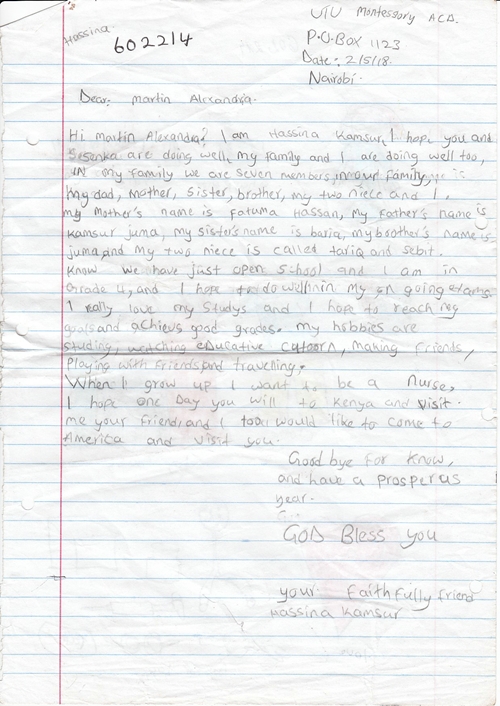 Hassina
602214
UTU Montessory ACD.
P.O.BOX 1123
Date: 2/5/18.
Nairobi.
Dear: Martin Alexandra.
Hi Martin Alexandra? I am Hassina Kamsur, I hope you and
are doing well, my family and I are doing well too,
IN my family we are seven members, in our family,
my dad, mother, sister, brother, my two niece and I.
my mother's name is Fatuma Hassan, my father's name is
Kamsur juma, my sister's name is baria, my brother's name is
juma, and my two niece is called tariq and sebit.
Know we have just open school and I am in
Grade 4, and I hope to do well in my on going
I really love my studys and I hope to reach my
goals and achievs good grades. my hobbies are
studing, watching educative catoorn, making friends,
Playing with friends and travelling.
When I grow up I want to be a nurse,
I hope one Day you will to Kenya and visit.
me your friend, and I too would like to come to
America and visit you.
Good bye for know,
and have a prosperus
year.
GOD Bless you
your Faithfully friend
Hassina Kamsur